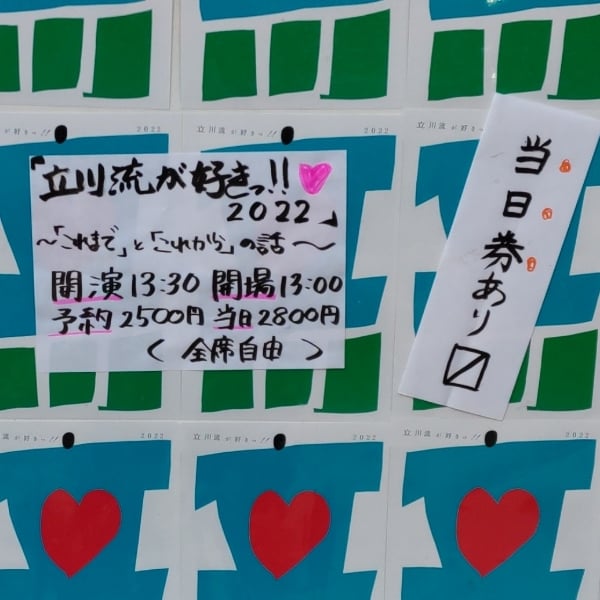 が好きっ!! 2022
立川流が好きっ!! 2022
立川流が好きっ!!
「立川流が好きっ!!
2022」
〜「これまで」と「これから」の話〜
開演13:30 開場13:00
予約2500円 当日2800円
〈全席自由〉
当日券あり〼
立川流が好きっ!! 2022
立川流が好きっ!! 2022
立川流が好きっ!! 2022